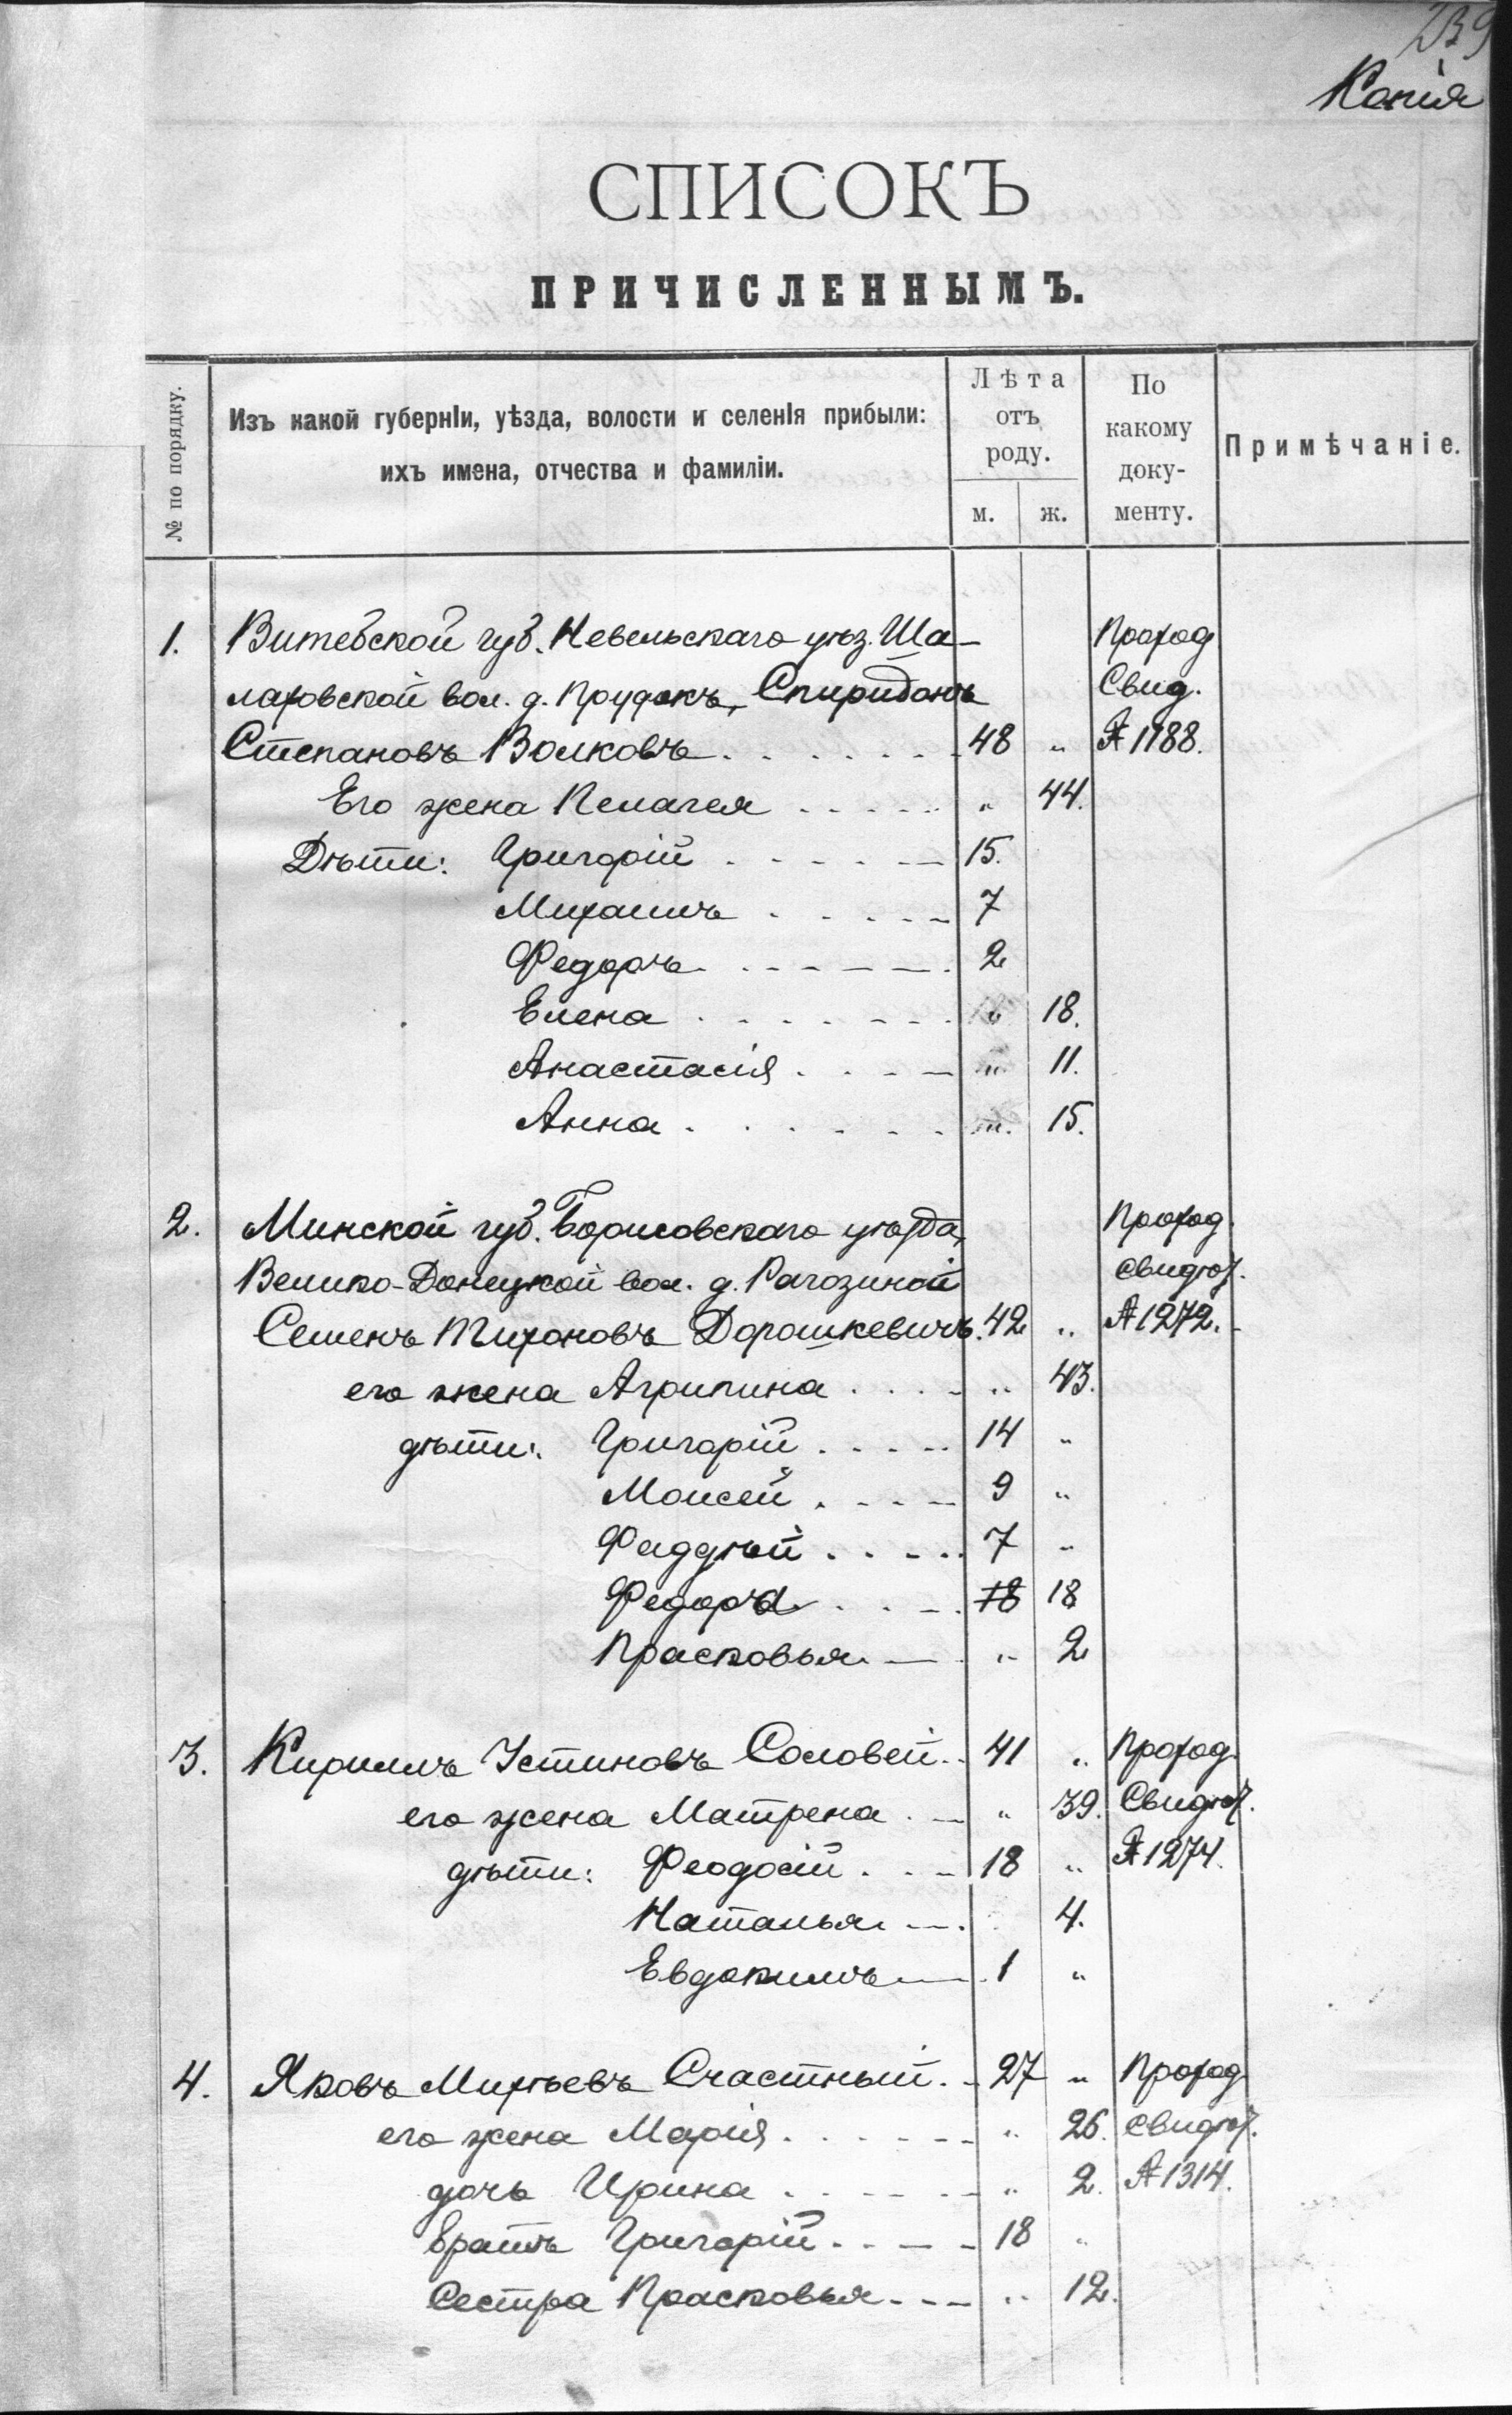 239
Копія
СПИСОКЪ
ПРИЧИСЛЕННЫМЪ.
№ по порядку.
Изъ какой губерніи, уѣзда, волости и селенія прибыли:
ихъ имена, отчества и фамиліи.
Лѣта
отъ
роду.
м. ж.
По
какому
доку-
менту.
Примѣчаніе.
1. Витебской губ. Невельскаго уѣз. Ша- Проход
лаховской вол. д. Прудокъ, Спиридонъ Свид.
Степановъ Волковъ 48 " № 1188.
Его жена Пелагея " 44.
Дѣти: Григорій 15.
Михаилъ 7
Федоръ 2
Елена " 18.
Анастасія " 11.
Анна " 15.
2. Минской губ. Борисовскаго уѣзда, Проход.
Велико-Долецкой вол. д. Рагозиной свидѣт.
Семенъ Тихоновъ Дорошкевичъ. 42 " № 1272.
его жена Агрипина " 43.
дѣти: Григорій 14 "
Моисей 9 "
Фаддѣй 7 "
Федора 18 18
Прасковья " 2
3. Кириллъ Устиновъ Соловей 41 " Проход.
его жена Матрена " 39. Свидѣт.
дѣти: Феодосій 18 " № 1274.
Наталья 4.
Евдокимъ 1 "
4. Яковъ Михѣевъ Счастный. 27 " Проход
его жена Марія " 26. свидѣт.
дочь Ирина " 2. № 1314.
братъ Григорій 18 "
Сестра Прасковья " 12.